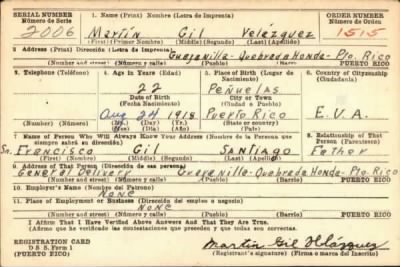 SERIAL NUMBER
Número de Serie
1. Name (Print) Nombre (Letra de Imprenta)
ORDER NUMBER
Número de Orden
2006 Martín Gil Velázquez 1515
(First) (Primer Nombre) (Middle) (Segundo) (Last) (Apellido)
2 Address (Print) Dirección (Letra de Imprenta)
Guayanilla - Quebrada Honda - Pto. Rico
(Number and street) (Número y calle) (Town) (Pueblo) (Barrio) PUERTO RICO
3. Telephone (Teléfono)
4. Age in Years (Edad)
5. Place of Birth (Lugar de Nacimiento)
6. Country of Citizenship (Ciudadanía)
22 Peñuelas
Date of Birth
(Fecha Nacimiento)
City or Town
(Ciudad o Pueblo)
Aug 24 1918 Puerto Rico E.U.A.
(Number) (Número) (Mo.) (Day) (Yr.)
(Mes) (Día) (Año)
State or country
(País)
7. Name of Person Who Will Always Know Your Address (Nombre de la Persona que siempre sabrá su dirección)
8. Relationship of That Person (Parentesco)
Sr. Francisco Gil Santiago Father
(First) (Nombre) (Middle) (Segundo) (Last) (Apellido)
9. Address of That Person (Dirección de esa persona)
General Delivery Guayanilla - Quebrada Honda - Pto. Rico
(Number and street) (Número y calle) (Town) (Pueblo) (Barrio) PUERTO RICO
10. Employer's Name (Nombre del Patrono)
None
11. Place of Employment or Business (Dirección del empleo o negocio)
None
(Number and street) (Número y calle) (Town) (Pueblo) (Barrio) PUERTO RICO
I Affirm That I Have Verified Above Answers And That They Are True.
(Afirmo que he verificado las contestaciones que preceden y que todas son correctas.
REGISTRATION CARD
D S S. Form 1
(PUERTO RICO)
Martín Gil Velázquez
(Registrant's signature) (Firma o marca del Inscrito)